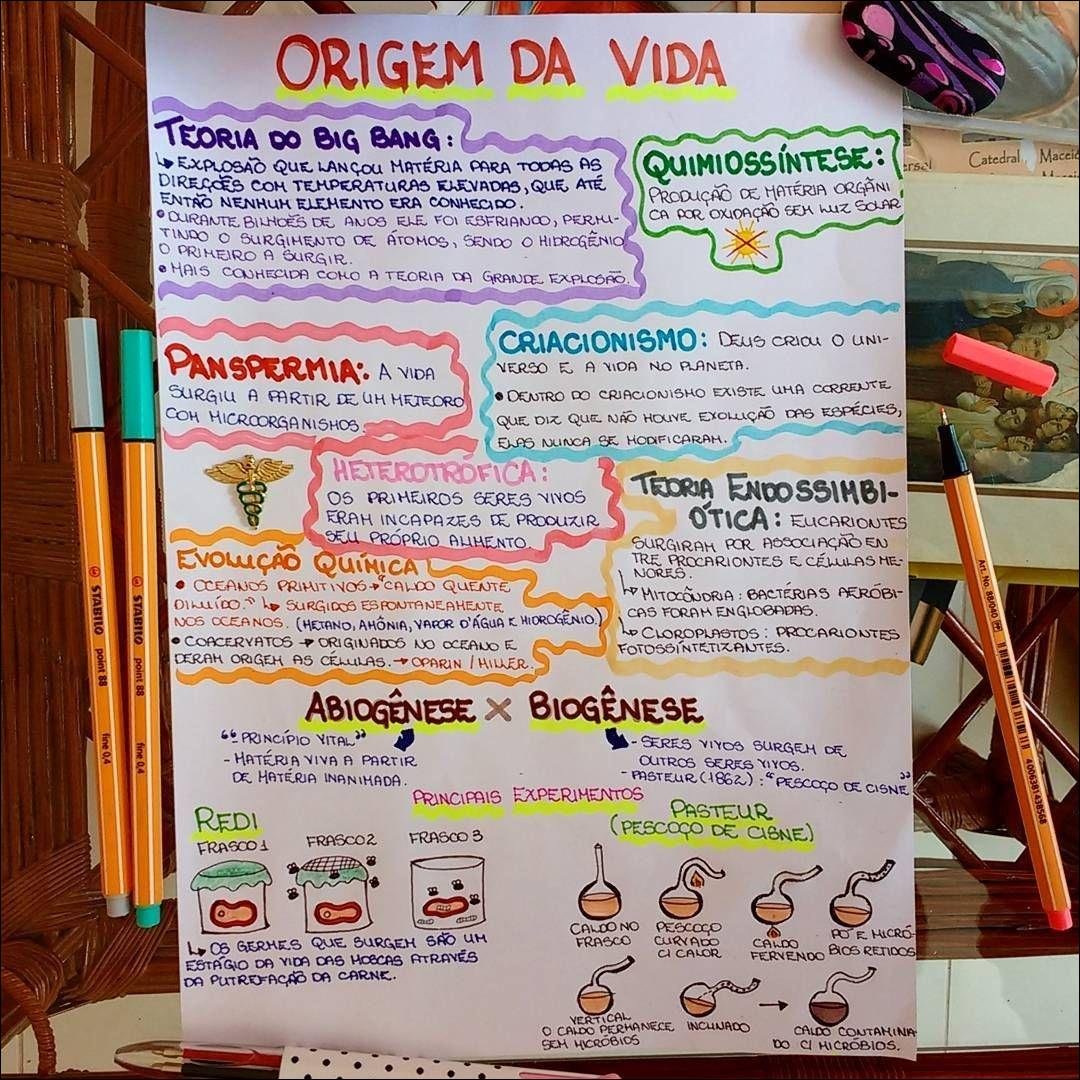 ORIGEM DA VIDA
TEORIA DO BIG BANG:
↳ EXPLOSÃO QUE LANÇOU MATÉRIA PARA TODAS AS
DIREÇÕES COM TEMPERATURAS ELEVADAS, QUE ATÉ
ENTÃO NENHUM ELEMENTO ERA CONHECIDO.
• DURANTE BILHÕES DE ANOS ELE FOI ESFRIANDO, PERMI-
TINDO O SURGIMENTO DE ÁTOMOS, SENDO O HIDROGÊNIO
O PRIMEIRO A SURGIR.
• MAIS CONHECIDA COMO A TEORIA DA GRANDE EXPLOSÃO.
QUIMIOSSÍNTESE:
PRODUÇÃO DE MATÉRIA ORGÂNI
CA POR OXIDAÇÃO SEM LUZ SOLAR
Catedral
PANSPERMIA: A VIDA
SURGIU A PARTIR DE UM METEORO
COM MICROORGANISMOS.
CRIACIONISMO: DEUS CRIOU O UNI-
VERSO E A VIDA NO PLANETA.
• DENTRO DO CRIACIONISMO EXISTE UMA CORRENTE
QUE DIZ QUE NÃO HOUVE EXOLUÇÃO DAS ESPÉCIES,
ELAS NUNCA SE MODIFICARAM.
HETEROTRÓFICA:
OS PRIMEIROS SERES VIVOS
ERAM INCAPAZES DE PRODUZIR
SEU PRÓPRIO ALIMENTO.
TEORIA ENDOSSIMBI-
ÓTICA: EUCARIONTES
SURGIRAM POR ASSOCIAÇÃO EN
TRE PROCARIONTES E CÉLULAS ME-
NORES.
↳ MITOCÔNDRIA: BACTÉRIAS AERÓBI-
CAS FORAM ENGLOBADAS.
↳ CLOROPLASTOS: PROCARIONTES
FOTOSSINTETIZANTES.
EVOLUÇÃO QUÍMICA
• OCEANOS PRIMITIVOS → "CALDO QUENTE
DILUÍDO." ↳ SURGIDOS ESPONTANEAMENTE
NOS OCEANOS. (METANO, AMÔNIA, VAPOR D'ÁGUA E HIDROGÊNIO.)
• COACERVATOS → ORIGINADOS NO OCEANO E
DERAM ORIGEM AS CÉLULAS. → OPARIN / MILLER.
ABIOGÊNESE X BIOGÊNESE
"PRINCÍPIO VITAL"
- MATÉRIA VIVA A PARTIR
DE MATÉRIA INANIMADA.
- SERES VIVOS SURGEM DE
OUTROS SERES VIVOS.
- PASTEUR (1862): "PESCOÇO DE CISNE"
PRINCIPAIS EXPERIMENTOS
REDI
FRASCO 1
FRASCO 2
FRASCO 3
↳ OS GERMES QUE SURGEM SÃO UM
ESTÁGIO DA VIDA DAS MOSCAS ATRAVÉS
DA PUTREFAÇÃO DA CARNE.
PASTEUR
(PESCOÇO DE CISNE)
CALDO NO
FRASCO
PESCOÇO
CURVADO
C/ CALOR
CALDO
FERVENDO
PÓ E MICRÓ-
BIOS RETIDOS
VERTICAL
O CALDO PERMANECE
SEM MICRÓBIOS
INCLINADO
→
CALDO CONTAMINA
DO C/ MICRÓBIOS.
STABILO point 88 fine 0,4
STABILO point 88 fine 0,4
Art. No. 88/040
4006381438568